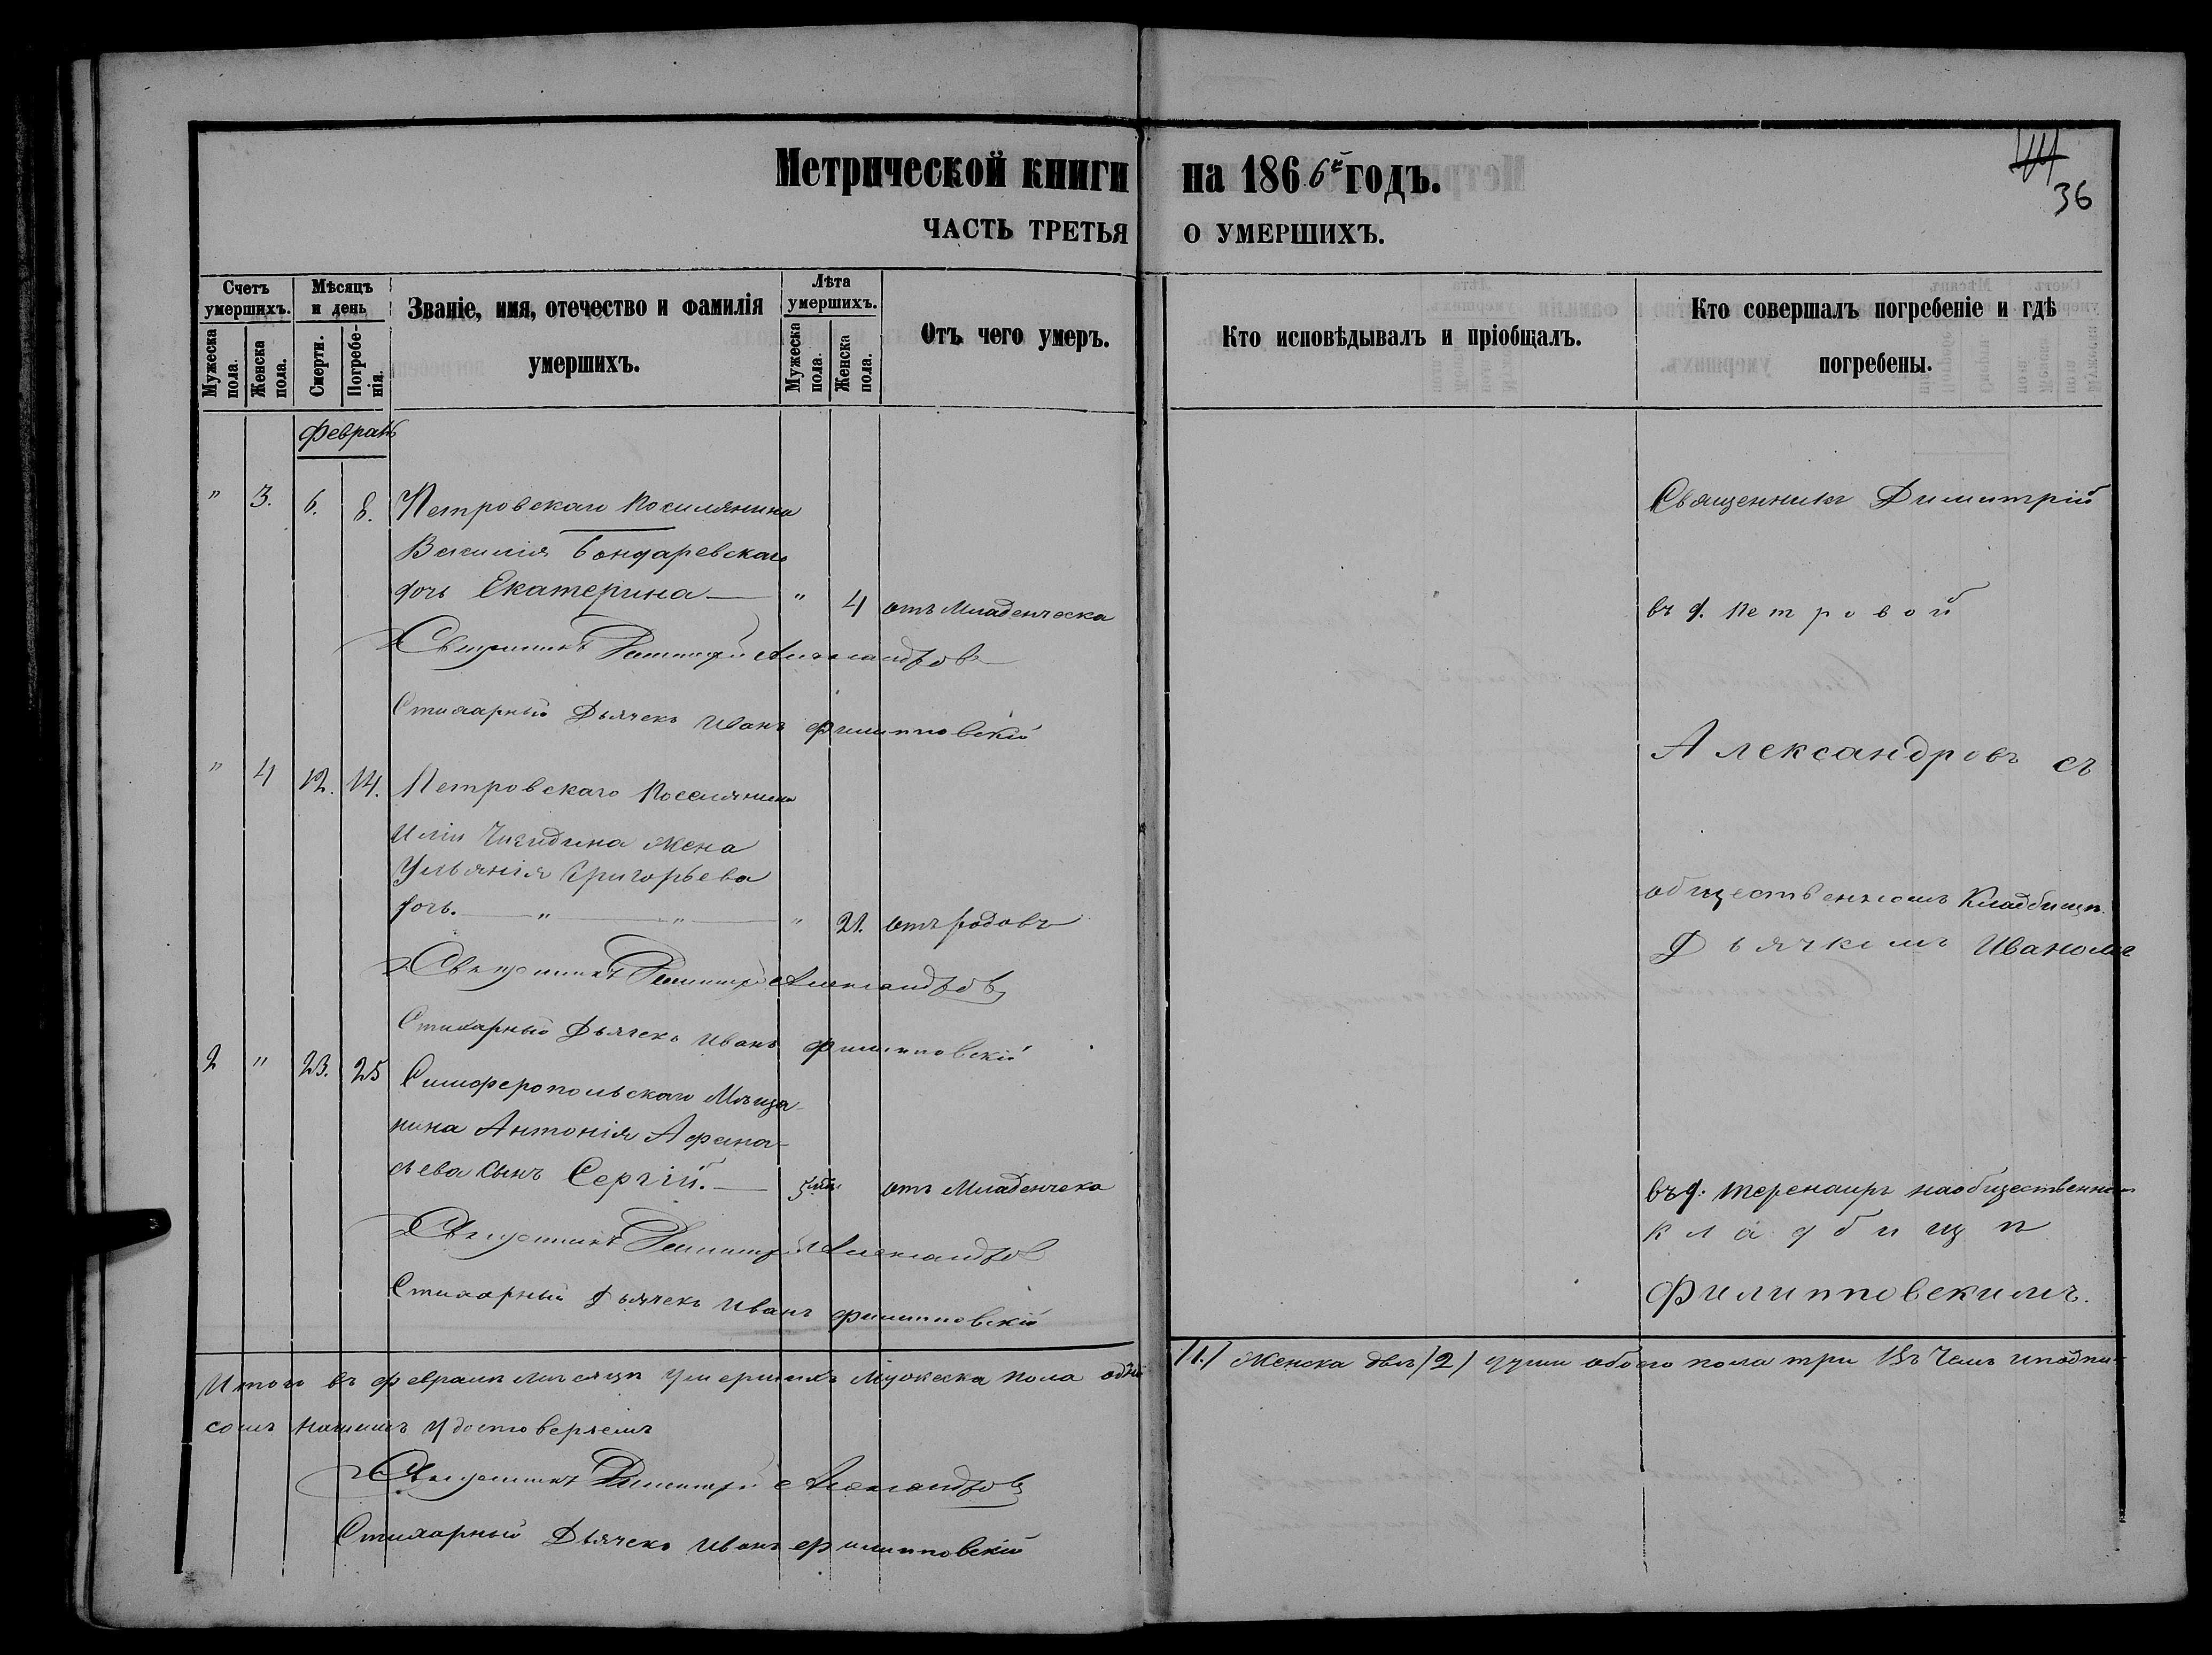 Метрической книги на 1866й годъ.
36
ЧАСТЬ ТРЕТЬЯ О УМЕРШИХЪ.
Счетъ умершихъ.
Мужеска пола.
Женска пола.
Мѣсяцъ и день
Смерти.
Погребенія.
Званіе, имя, отечество и фамилія
умершихъ.
Лѣта умершихъ.
Мужеска пола.
Женска пола.
Отъ чего умеръ.
Кто исповѣдывалъ и пріобщалъ.
Кто совершалъ погребеніе и гдѣ
погребены.
Февраль
" 3. 6. 8. Петровскаго Поселянина
Василія Бондаревскаго
дочь Екатерина — " 4 отъ Младенческа
Священникъ Димитрій Александровъ
Стихарный Дьячекъ Иванъ Филипповскій
" 4 12. 14. Петровскаго Поселянина
Иліи Жена
Ульянія Григорьева
дочь. — " — " — " 21. отъ родовъ
Священникъ Димитрій Александровъ
Стихарный Дьячекъ Иванъ Филипповскій
2 " 23. 25 Симферопольскаго Мѣща-
нина Антонія Афана-
сьева Сынъ Сергій. — 5 отъ Младенческа
Священникъ Димитрій Александровъ
Стихарный Дьячекъ Иванъ Филипповскій
Священникъ Димитрій
въ д. Петровой
Александровъ съ
общественномъ Кладбищѣ.
Дьячкомъ Иваномъ
въ д: на общественномъ
кладбищѣ
Филипповскимъ.
Итого въ Февралѣ мѣсяцѣ Умершихъ Мужеска пола одинъ /1./ Женска двѣ /2/ души обоего пола три Въ Чемъ и подпи-
сомъ нашимъ Удостоверяемъ
Священникъ Димитрій Александровъ
Стихарный Дьячекъ Иванъ Филипповскій